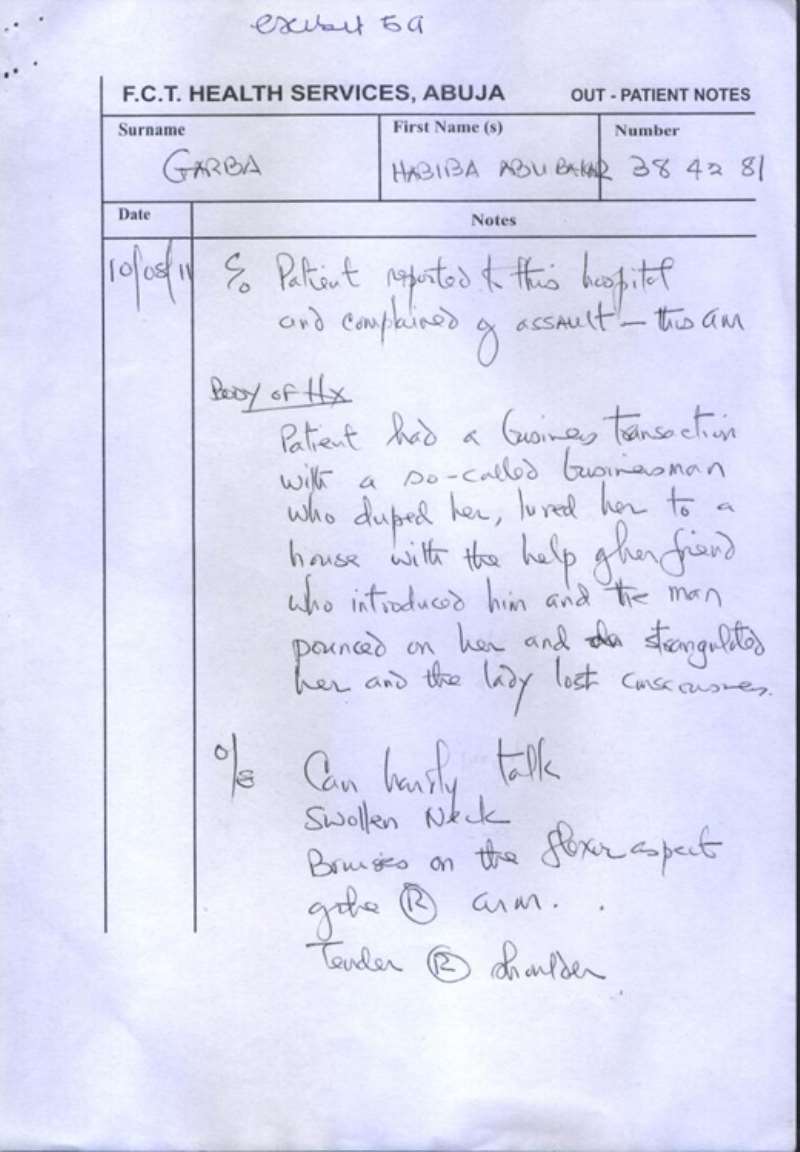 exibit 5a
F.C.T. HEALTH SERVICES, ABUJA OUT - PATIENT NOTES
Surname First Name (s) Number
GARBA HABIBA ABUBAKAR 38 42 81
Date Notes
10/08/11 C/o Patient reported to this hospital
and complained of assault – this am
Body of Hx
Patient had a business transaction
with a so-called businessman
who duped her, lured her to a
house with the help of her friend
who introduced him and the man
pounced on her and strangulated
her and the lady lost consciousness.
O/E Can hardly talk
Swollen Neck
Bruises on the flexor aspect
of the R arm.
Tender R shoulder